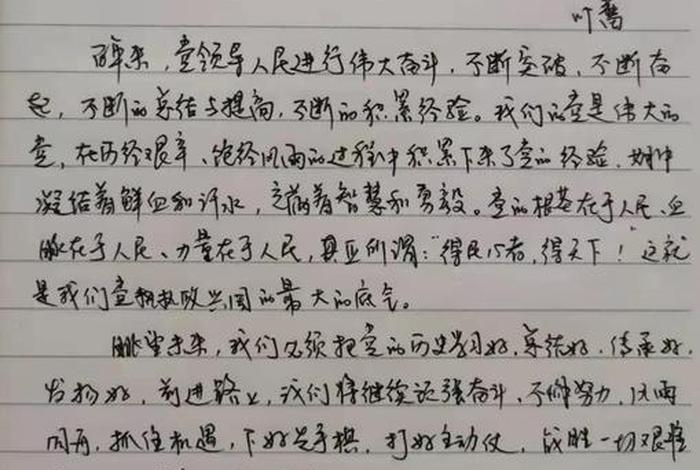 叶蔷
百年来，党领导人民进行伟大奋斗，不断突破，不断奋
起，不断的总结与提高，不断的积累经验。我们的党是伟大的
党，在历经艰辛、饱经风雨的过程中积累下来了党的经验，
凝结着鲜血和汗水，充满着智慧和勇毅。党的根基在于人民、血
脉在于人民、力量在于人民，真正所谓："得民心者，得天下！"这就
是我们党执政兴国的最大的底气。
眺望未来，我们必须把党的历史学习好，总结好，传承好，
发扬好，前进路上，我们将继续顽强奋斗，不懈努力，风雨
同舟，抓住机遇，下好先手棋，打好主动仗，战胜一切艰难